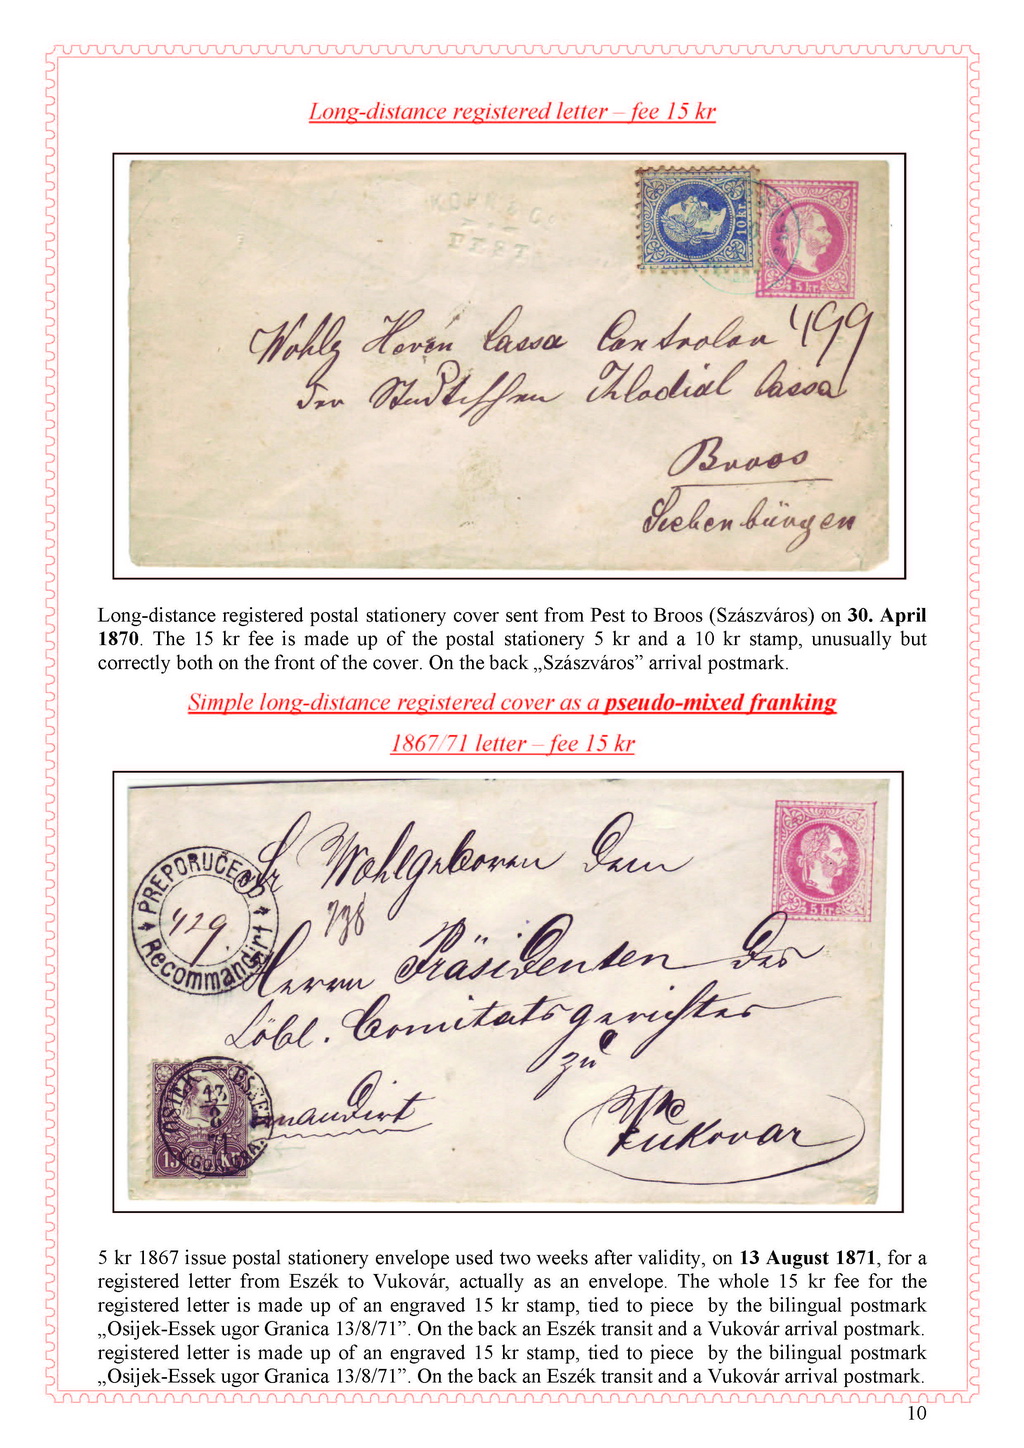 Long-distance registered letter – fee 15 kr
KOHN & Co
PEST
10 kr.
5 kr.
Wohlg Herrn Cassa Controlor 499
der Städtischen Allodial Cassa
Broos
Siebenbürgen
Long-distance registered postal stationery cover sent from Pest to Broos (Szászváros) on 30. April
1870. The 15 kr fee is made up of the postal stationery 5 kr and a 10 kr stamp, unusually but
correctly both on the front of the cover. On the back „Szászváros” arrival postmark.
Simple long-distance registered cover as a pseudo-mixed franking
1867/71 letter – fee 15 kr
Sr Wohlgeboren Dem
5 kr.
PREPORUČEÐO
429.
Recommandirt
738
Herrn Präsidenten des
Löbl. Comitatsgerichtes
zu
Vukovar
OSIEK ESSEK
13
8
71
15 KR
mandirt
5 kr 1867 issue postal stationery envelope used two weeks after validity, on 13 August 1871, for a
registered letter from Eszék to Vukovár, actually as an envelope. The whole 15 kr fee for the
registered letter is made up of an engraved 15 kr stamp, tied to piece by the bilingual postmark
„Osijek-Essek ugor Granica 13/8/71”. On the back an Eszék transit and a Vukovár arrival postmark.
registered letter is made up of an engraved 15 kr stamp, tied to piece by the bilingual postmark
„Osijek-Essek ugor Granica 13/8/71”. On the back an Eszék transit and a Vukovár arrival postmark.
10